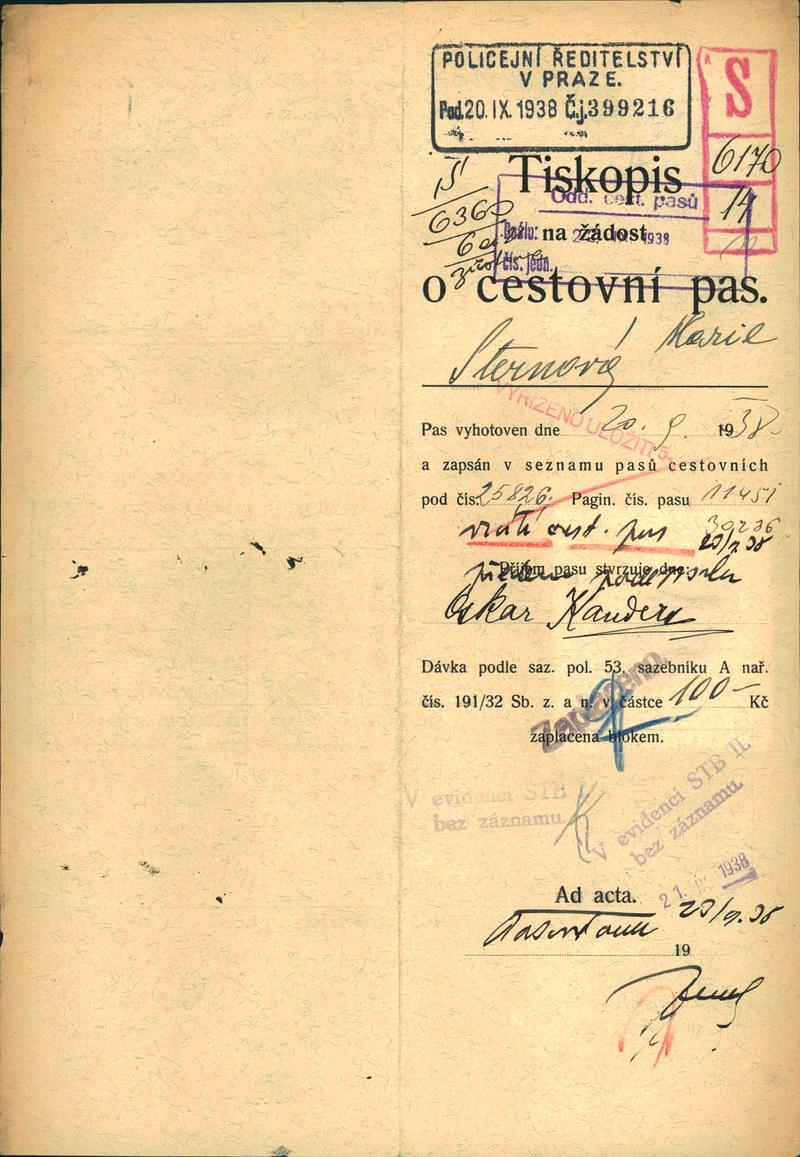 POLICEJNÍ ŘEDITELSTVÍ
V PRAZE.
Pod. 20. IX. 1938 Č.j. 399216
S
6170
14
11
15
6360
Tiskopis
Odd. cest. pasů
Došlo: 1938
na žádost
čís. jedn.
o cestovní pas.
Sternová Marie
VYŘÍZENO ULOŽITI
Pas vyhotoven dne 20. 9. 1938
a zapsán v seznamu pasů cestovních
pod čís. 25826. Pagin. čís. pasu 11451
cest. pas 39236
Příjem pasu stvrzuje dne:
Oskar
Dávka podle saz. pol. 53, sazebníku A nař.
čís. 191/32 Sb. z. a n. v částce 100 — Kč
Zaplaceno
zaplacena blokem.
V evidenci STB
bez záznamu.
V evidenci STB II.
bez záznamu.
21. IX. 1938
Ad acta.
19